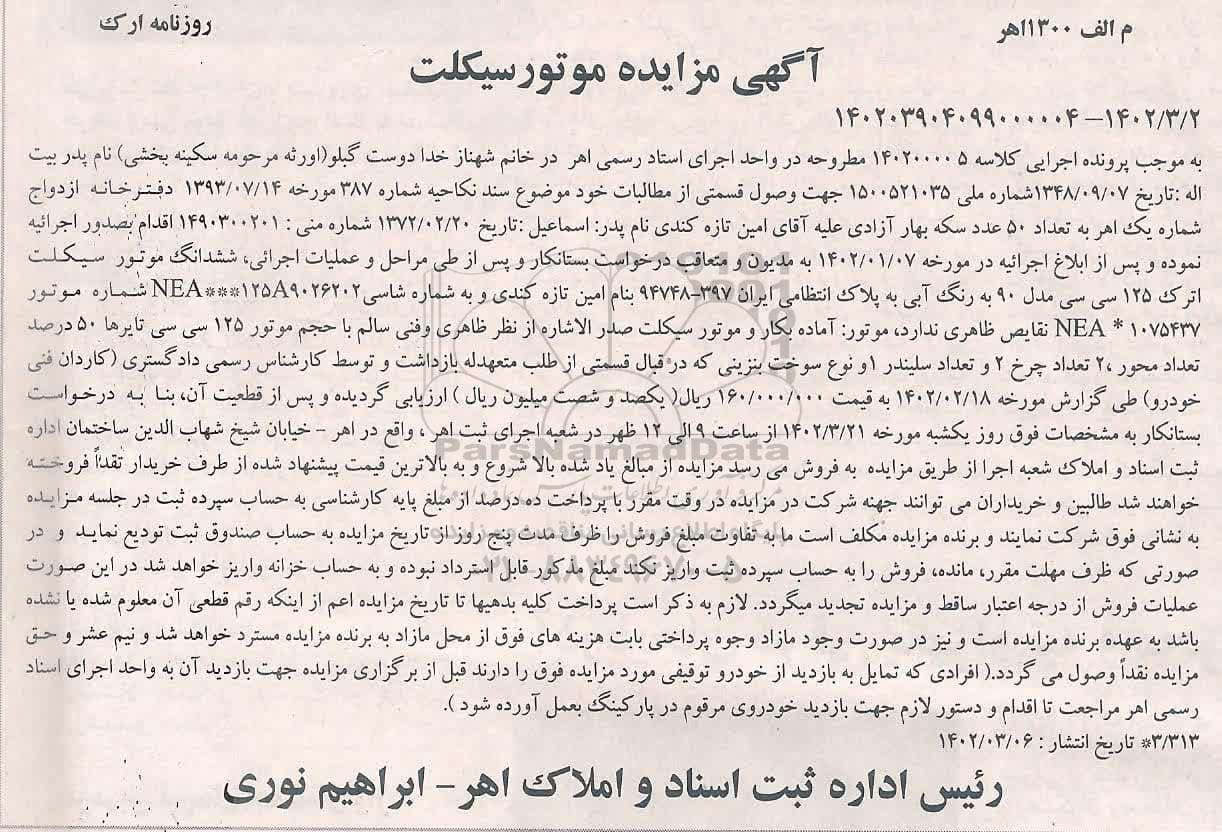 م الف ۱۳۰۰اهر
روزنامه ارک
آگهی مزایده موتورسیکلت
۱۴۰۲/۳/۲–۱۴۰۲۰۳۹۰۴۰۹۹۰۰۰۰۰۴
به موجب پرونده اجرایی کلاسه ۱۴۰۲۰۰۰۰۵ مطروحه در واحد اجرای اسناد رسمی اهر در خانم شهناز خدا دوست گبلو(اورثه مرحومه سکینه بخشی) نام پدر بیت
اله :تاریخ ۱۳۴۸/۰۹/۰۷شماره ملی ۱۵۰۰۵۲۱۰۳۵ جهت وصول قسمتی از مطالبات خود موضوع سند نکاحیه شماره ۳۸۷ مورخه ۱۳۹۳/۰۷/۱۴ دفترخانه ازدواج
شماره یک اهر به تعداد ۵۰ عدد سکه بهار آزادی علیه آقای امین تازه کندی نام پدر: اسماعیل :تاریخ ۱۳۷۲/۰۲/۲۰ شماره منی : ۱۴۹۰۳۰۰۲۰۱ اقدام بصدور اجرائیه
نموده و پس از ابلاغ اجرائیه در مورخه ۱۴۰۲/۰۱/۰۷ به مدیون و متعاقب درخواست بستانکار و پس از طی مراحل و عملیات اجرائی، ششدانگ موتور سیکلت
اترک ۱۲۵ سی سی مدل ۹۰ به رنگ آبی به پلاک انتظامی ایران ۳۹۷-۹۴۷۴۸ بنام امین تازه کندی و به شماره شاسی NEA***۱۲۵A۹۰۲۶۲۰۲ شماره موتور
NEA * ۱۰۷۵۴۳۷ نقایص ظاهری ندارد، موتور: آماده بکار و موتور سیکلت صدر الاشاره از نظر ظاهری وفنی سالم با حجم موتور ۱۲۵ سی سی تایرها ۵۰ درصد
تعداد محور ،۲ تعداد چرخ ۲ و تعداد سلیندر ۱و نوع سوخت بنزینی که در قبال قسمتی از طلب متعهدله بازداشت و توسط کارشناس رسمی دادگستری (کاردان فنی
خودرو) طی گزارش مورخه ۱۴۰۲/۰۲/۱۸ به قیمت ۱۶۰/۰۰۰/۰۰۰ ریال( یکصد و شصت میلیون ریال ) ارزیابی گردیده و پس از قطعیت آن، بنا به درخواست
بستانکار به مشخصات فوق روز یکشبه مورخه ۱۴۰۲/۳/۲۱ از ساعت ۹ الی ۱۲ ظهر در شعبه اجرای ثبت اهر ، واقع در اهر – خیابان شیخ شهاب الدین ساختمان اداره
ثبت اسناد و املاک شعبه اجرا از طریق مزایده به فروش می رسد مزایده از مبالغ یاد شده بالا شروع و به بالاترین قیمت پیشنهاد شده از طرف خریدار تقداً فروخته
خواهند شد طالبین و خریداران می توانند جهنه شرکت در مزایده در وقت مقرر با پرداخت ده درصد از مبلغ پایه کارشناسی به حساب سپرده ثبت در جلسه مزایده
به نشانی فوق شرکت نمایند و برنده مزایده مکلف است ما به تفاوت مبلغ فروش را ظرف مدت پنج روز از تاریخ مزایده به حساب صندوق ثبت تودیع نماید و در
صورتی که ظرف مهلت مقرر، مانده، فروش را به حساب سپرده ثبت واریز نکند مبلغ مذکور قابل استرداد نبوده و به حساب خزانه واریز خواهد شد در این صورت
عملیات فروش از درجه اعتبار ساقط و مزایده تجدید میگردد. لازم به ذکر است پرداخت کلیه بدهیها تا تاریخ مزایده اعم از اینکه رقم قطعی آن معلوم شده یا نشده
باشد به عهده برنده مزایده است و نیز در صورت وجود مازاد وجوه پرداختی بابت هزینه های فوق از محل مازاد به برنده مزایده مسترد خواهد شد و نیم عشر و حق
مزایده نقداً وصول می گردد.( افرادی که تمایل به بازدید از خودرو توقیفی مورد مزایده فوق را دارند قبل از برگزاری مزایده جهت بازدید آن به واحد اجرای اسناد
رسمی اهر مراجعت تا اقدام و دستور لازم جهت بازدید خودروی مرقوم در پارکینگ بعمل آورده شود ).
۳/۳۱۳* تاریخ انتشار : ۱۴۰۲/۰۳/۰۶
رئیس اداره ثبت اسناد و املاک اهر– ابراهیم نوری
ParsNamadData